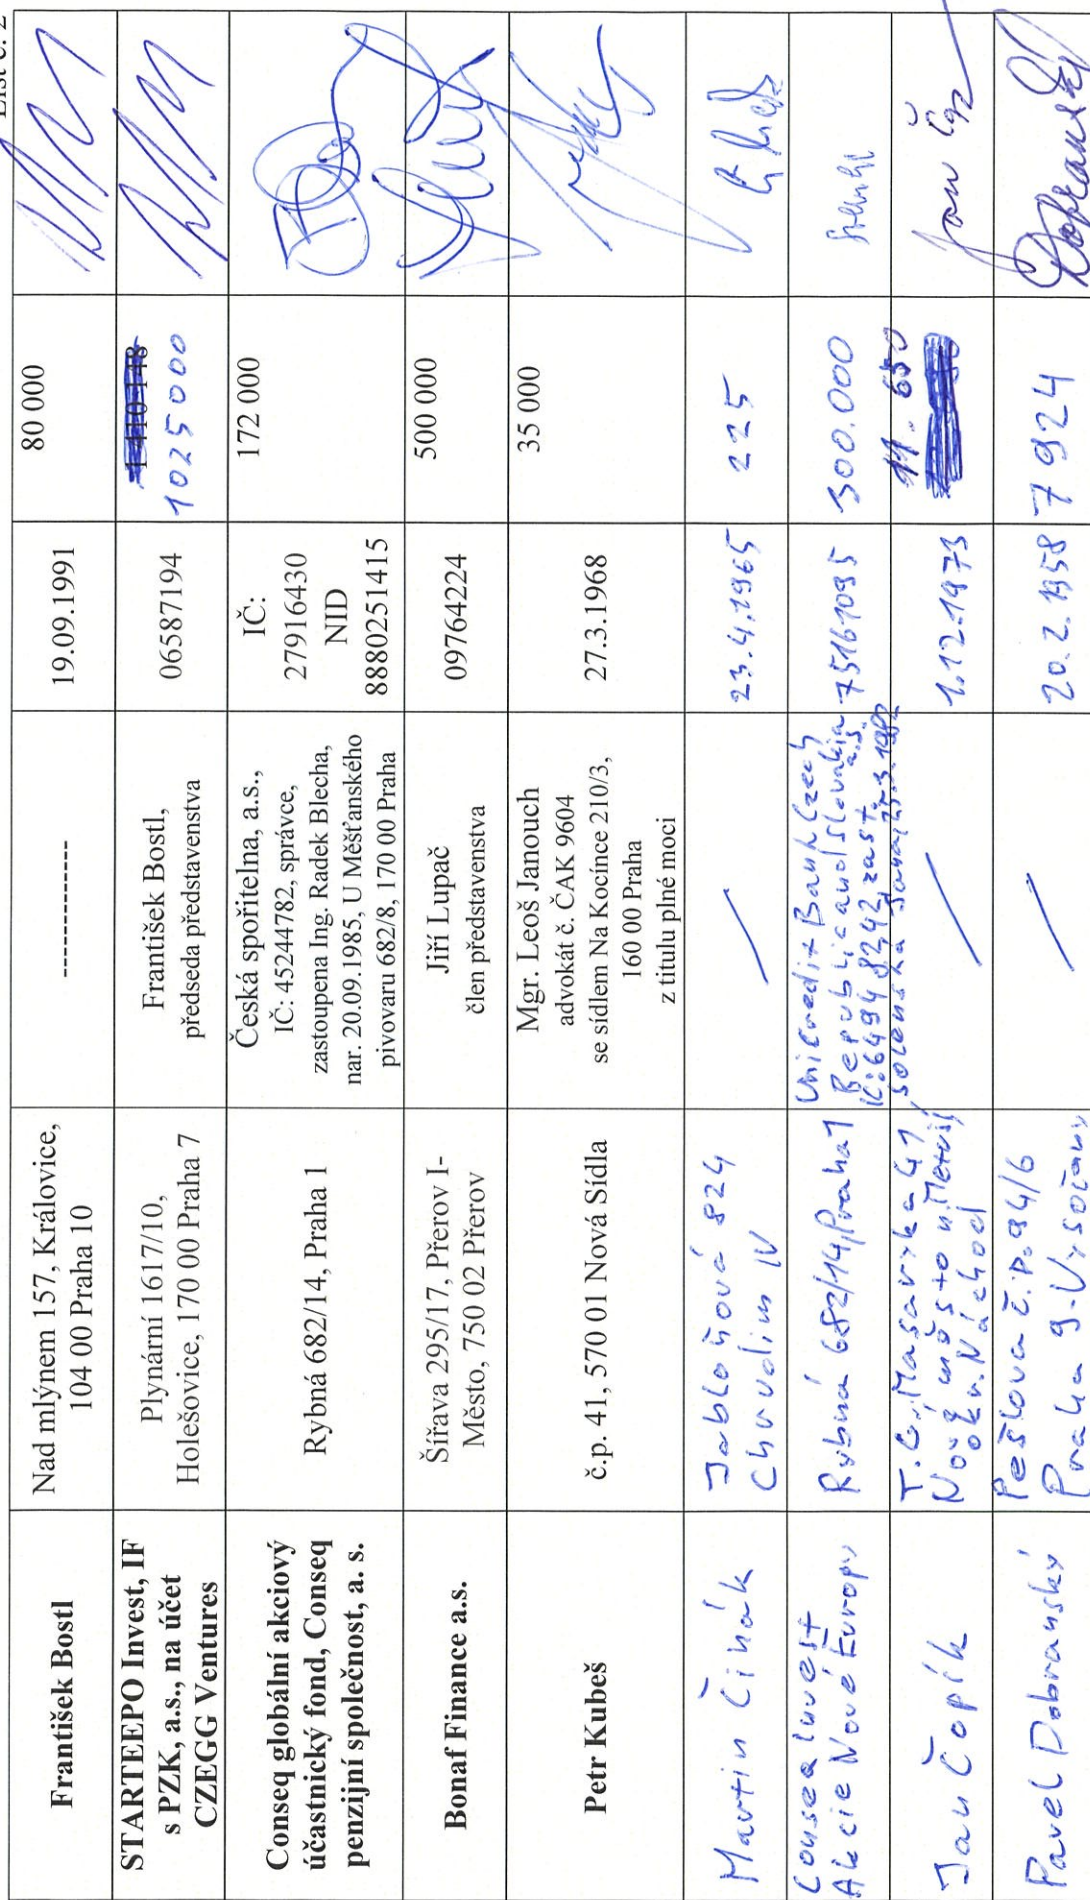 List č. 2
František Bostl
Nad mlýnem 157, Královice,
104 00 Praha 10
----------------
19.09.1991
80 000
STARTEEPO Invest, IF
s PZK, a.s., na účet
CZEGG Ventures
Plynární 1617/10,
Holešovice, 170 00 Praha 7
František Bostl,
předseda představenstva
06587194
1 410 148
1025000
Conseq globální akciový
účastnický fond, Conseq
penzijní společnost, a. s.
Rybná 682/14, Praha 1
Česká spořitelna, a.s.,
IČ: 45244782, správce,
zastoupena Ing. Radek Blecha,
nar. 20.09.1985, U Měšťanského
pivovaru 682/8, 170 00 Praha
IČ:
27916430
NID
8880251415
172 000
Bonaf Finance a.s.
Šířava 295/17, Přerov I-
Město, 750 02 Přerov
Jiří Lupač
člen představenstva
09764224
500 000
Petr Kubeš
č.p. 41, 570 01 Nová Sídla
Mgr. Leoš Janouch
advokát č. ČAK 9604
se sídlem Na Kocínce 210/3,
160 00 Praha
z titulu plné moci
27.3.1968
35 000
Martin Čihák
Jabloňová 824
Chrudim IV
23.4.1965
225
Conseq Invest
Akcie Nové Evropy
Rybná 682/14, Praha 1
Unicredit Bank Czech
Republic and Slovakia
a.s.
IČ: 64948242, zast.
75161095
300.000
Jan Čopík
T. G. Masaryka 41
Nové město n. Metují,
okr. Náchod
1.12.1973
11. 650
Jan Čop
Pavel Dobranský
Pešlova č.p. 94/6
Praha 9-Vysočany
20.2.1958
7924
Dobranský